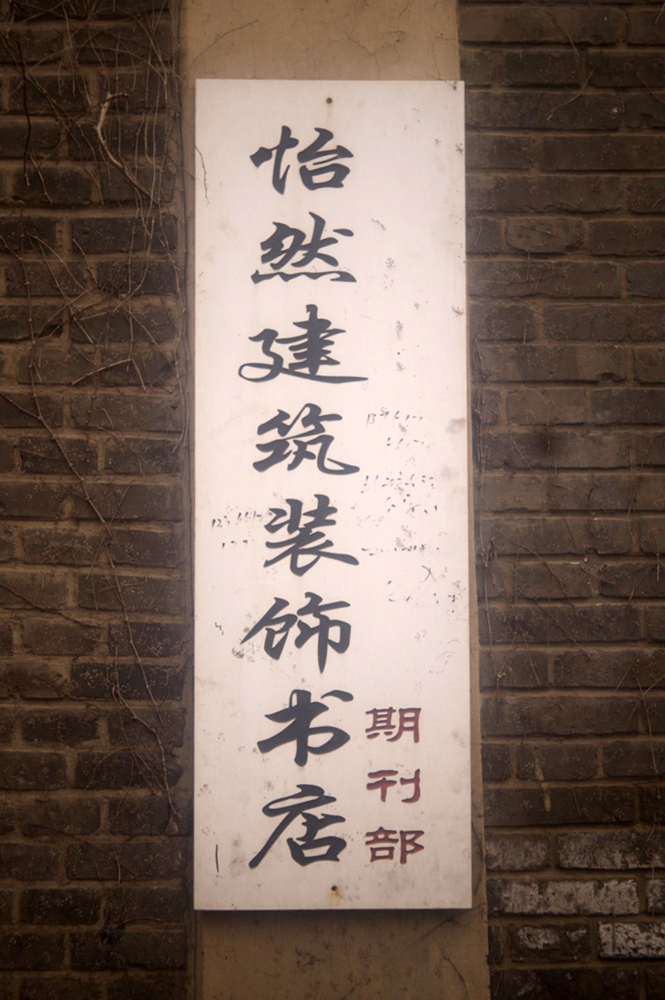 怡然建筑装饰书店
期刊部